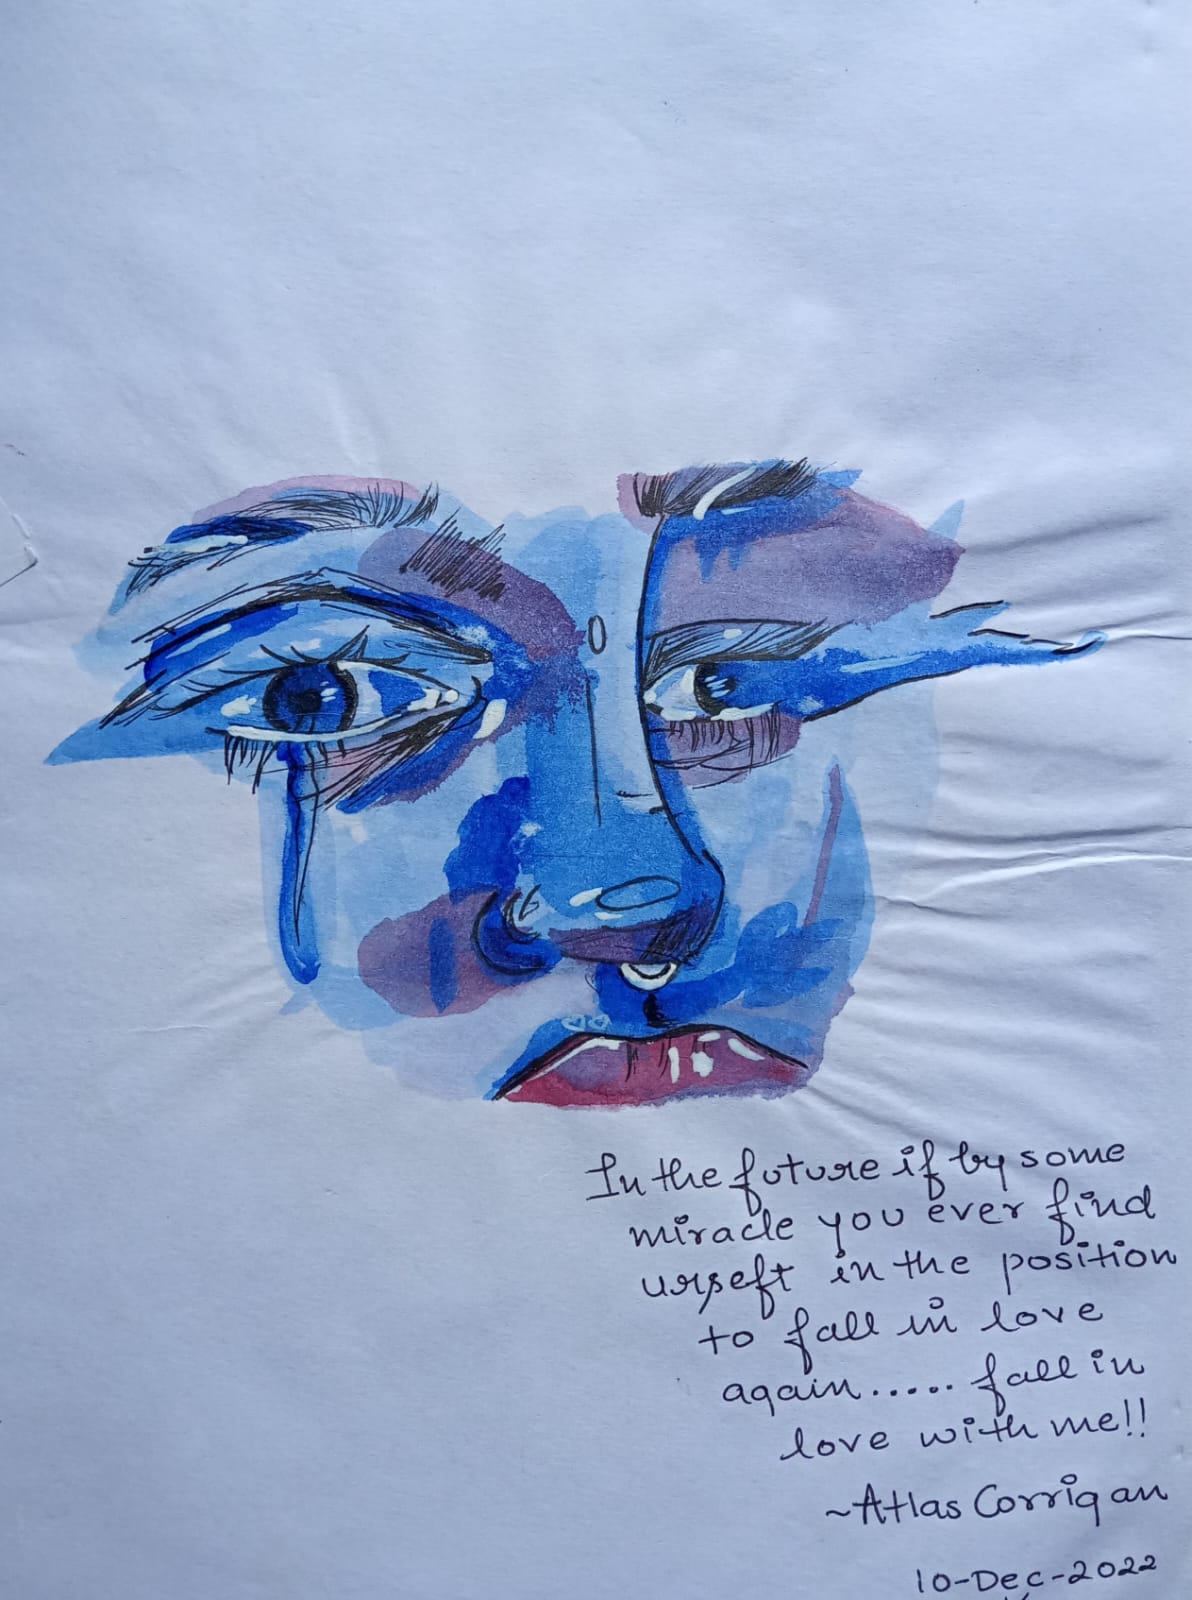 In the future if by some
miracle you ever find
urseft in the position
to fall in love
again..... fall in
love with me!!
~Atlas Corrigan
10-Dec-2022